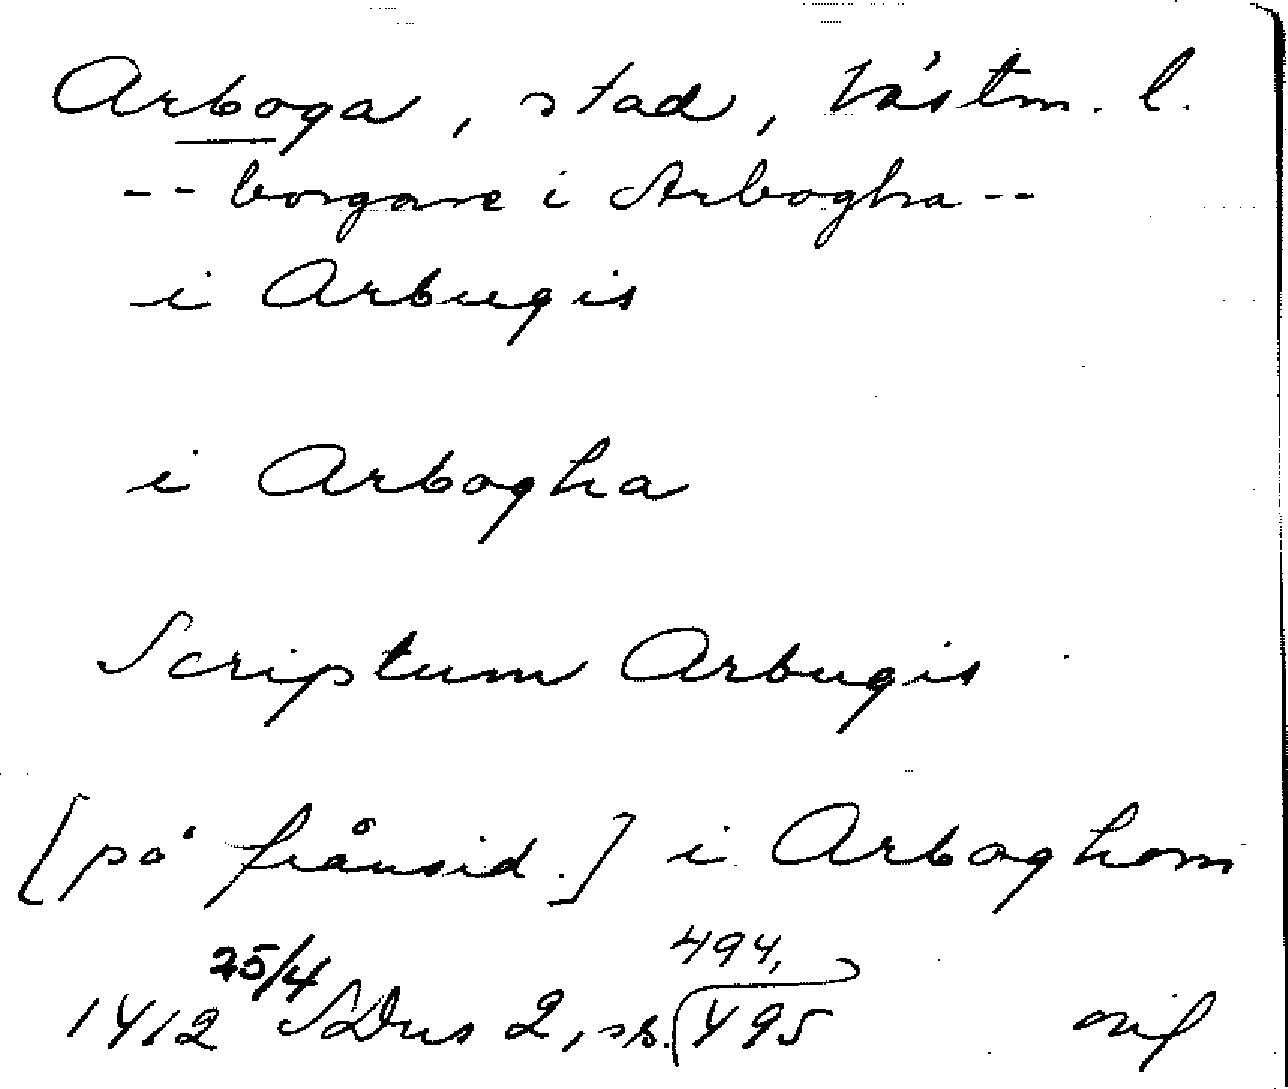 Arboga, stad, Västm. l.
-- borgare i Arbogha --
i Arbugis
i Arbogha
Scriptum Arbugis
[på frånsid.] i Arboghom
1412 25/4 SDns 2, s. 494, 495